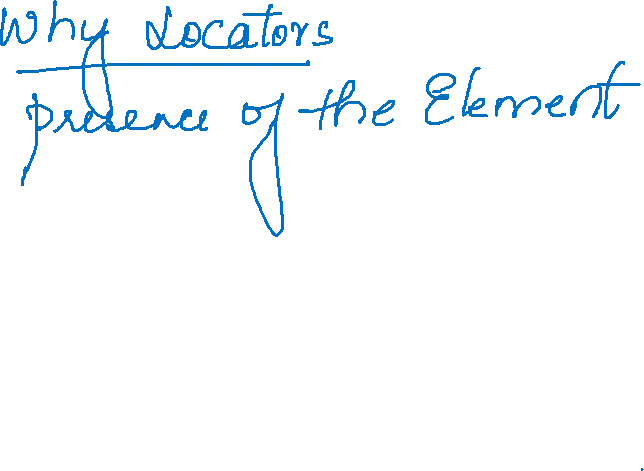 Why Locators
presence of the Element